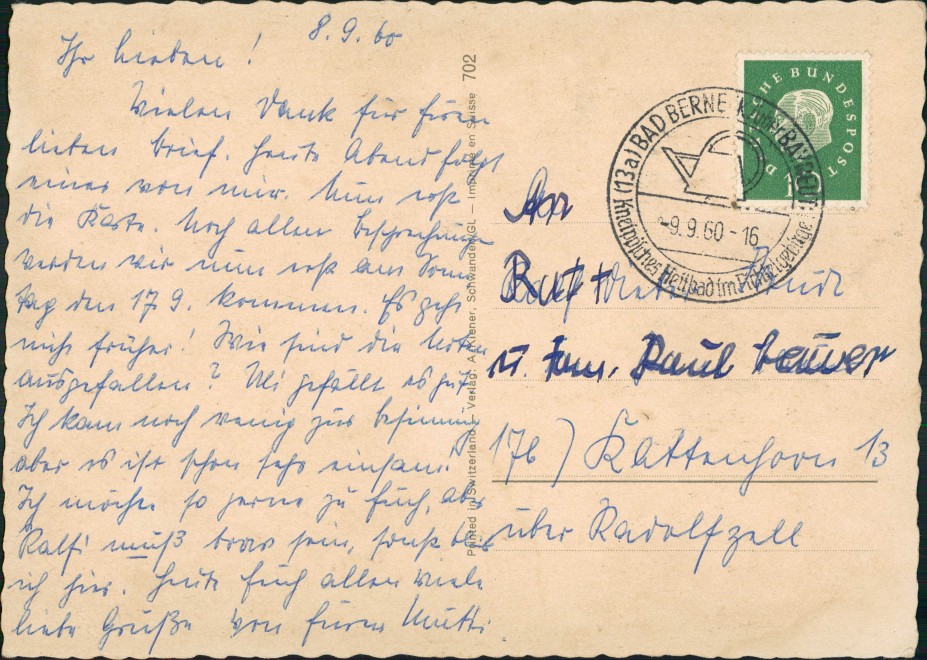 8.9.60
Ihr Lieben!
Vielen Dank für Euren
lieben Brief. Heute Abend folgt
einer von mir. Nun erst
die Karte. Nach allen Besprechungen
werden wir nun erst am Sonn
tag den 17.9. kommen. Es geht
nicht früher! Wie sind die Noten
ausgefallen? Uli gefällt es gut.
Ich kam noch wenig zur Besinnung
aber es ist schon sehr einsam!
Ich möchte so gerne zu Euch, aber
Ralfi muß brav sein, sonst bleib
ich hier. Heute Euch allen viele
liebe Grüße von Eurer Mutti
Printed in Switzerland - Verlag: Schwanden/GL — Imprimé en Suisse 702
DEUTSCHE BUNDESPOST
10
(13a) BAD BERNECK über BAYREUTH
-9.9.60-16
Kneippsches Heilbad im Fichtelgebirge
An
u. Fam. Paul Bauer
17b) Kattenhorn 13
über Radolfzell